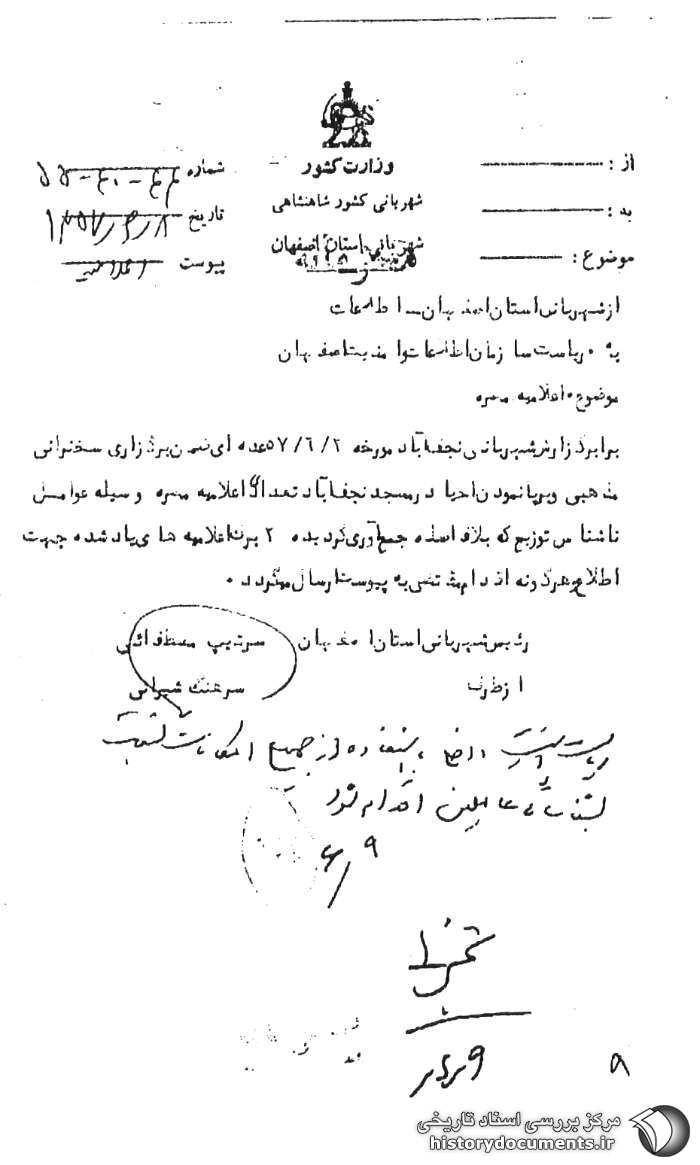 وزارت کشور
شهربانی کشور شاهنشاهی
شهربانی استان اصفهان
از :
به :
موضوع :
شماره
تاریخ ۱۳۵۷/۶/۸
پیوست اعلامیه
از شهربانی استان اصفهان ــ اطلاعات
به ۰ ریاست سازمان اطلاعات و امنیت اصفهان
موضوع ۰ اعلامیه مضره
برابر گزارش شهربانی نجف آباد مورخه ۵۷/۶/۲ عده ای ضمن برگزاری سخنرانی
مذهبی و برپا نمودن احیا در مسجد نجف آباد تعدادی اعلامیه مضره وسیله عوامل
ناشناس توزیع که بلافاصله جمع آوری گردیده ۲ برگ اعلامیه های یاد شده جهت
اطلاع و هرگونه اقدام مقتضی به پیوست ارسال میگردد ۰
رئیس شهربانی استان اصفهان سرتیپ مصطفائی
از طرف سرهنگ شیرانی
استفاده از جمیع امکانات نسبت
بشناسائی عاملین اقدام شود
۶/۹
۹
مرکز بررسی اسناد تاریخی
historydocuments.ir